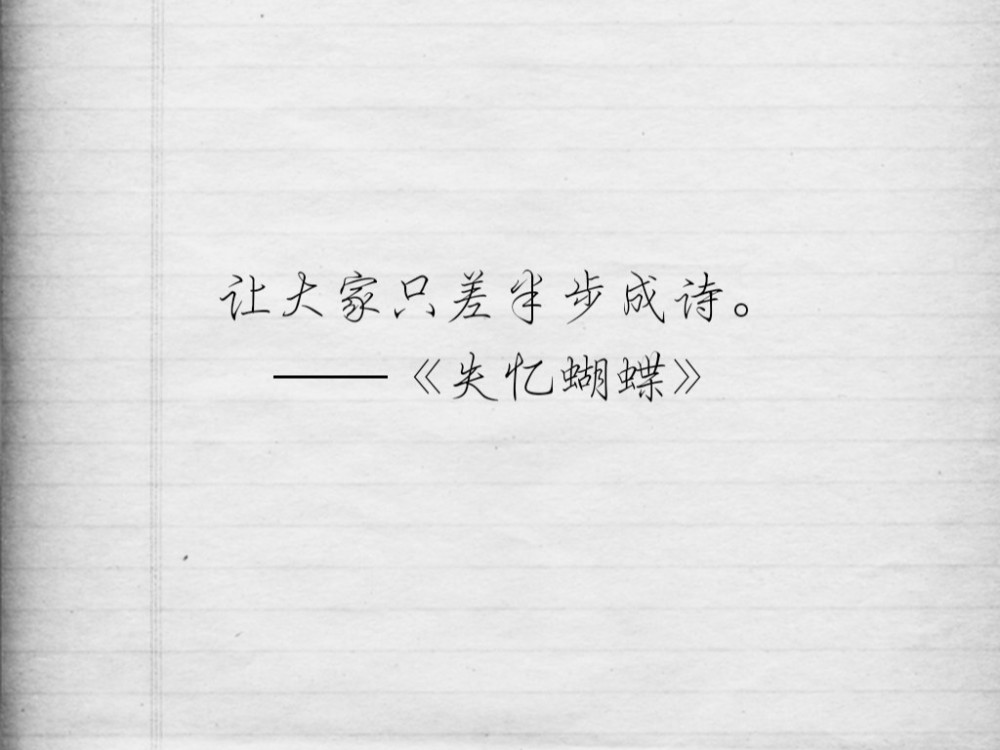 让大家只差半步成诗。
——《失忆蝴蝶》